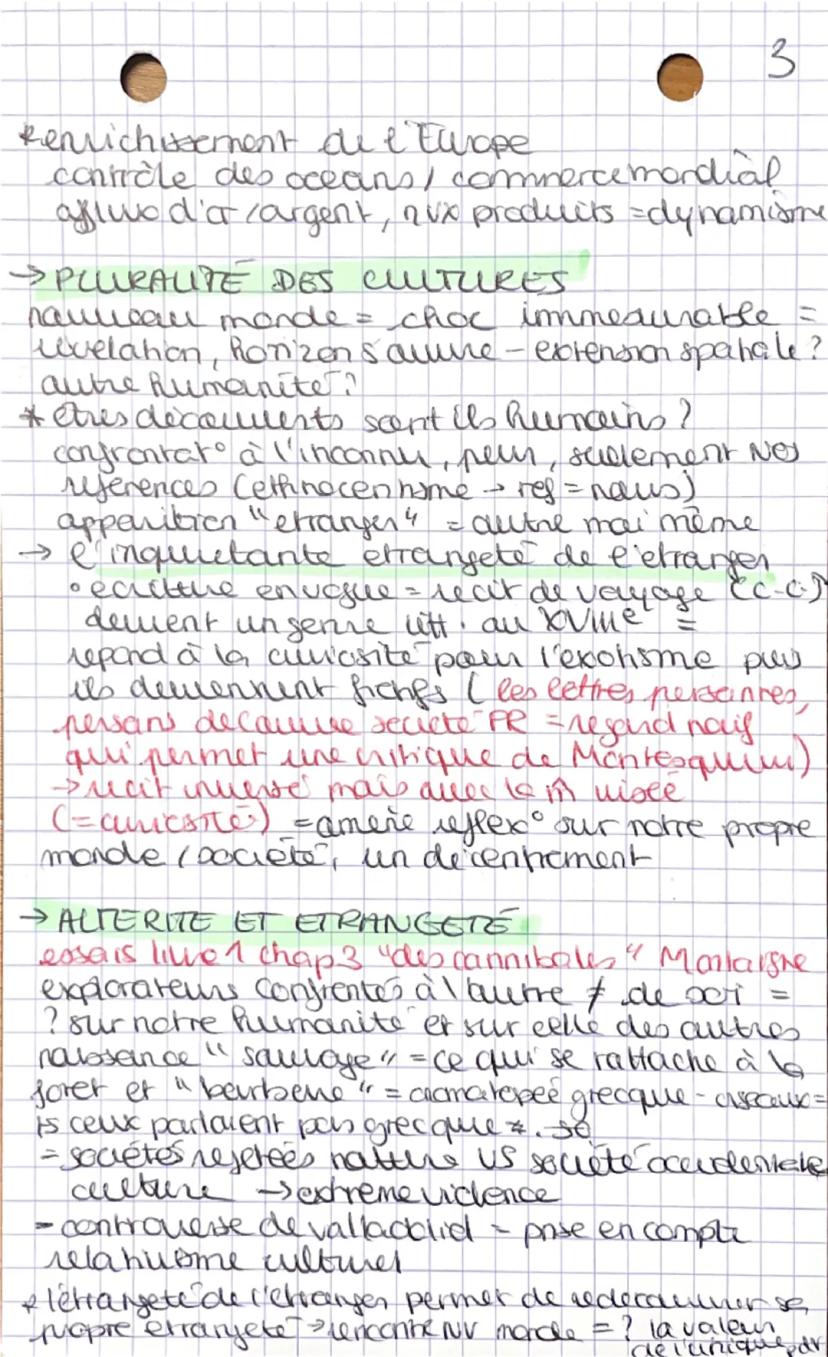 3
*enrichissement de l'Europe
contrôle des oceans / commerce mondial
afflux d'or / argent, nvx produits = dynamisme
→ PLURALITÉ DES CULTURES
nouveau monde = choc immesurable =
revelation, horizon s'ouvre - extension spatiale ?
autre humanité ?
* êtres découverts sont ils humains ?
confrontat° à l'inconnu, peur, seulement NOS
references (ethnocentrisme → ref = nous)
apparition "etranger" = autre moi même
→ l'inquietante etrangeté de l'etranger
• ecriture en vogue = recit de voyage (C.C.)
devient un genre litt. au XVIIIe =
repond à la curiosité pour l'exotisme puis
ils deviennent fictifs (les lettres persannes,
persans decouvre societé FR = regard naif
qui permet une critique de Montesquieu)
→ recit inversé mais avec la m̂ visée
(= curiosité) = amène reflex° sur notre propre
monde / societé, un décentrement
→ ALTERITE ET ETRANGETÉ
essais livre 1 chap 3 "des cannibales" Montaigne
explorateurs confrontés à l'autre ≠ de soi =
? sur notre humanité et sur celle des autres
naissance "sauvage" = ce qui se rattache à la
foret et "barbare" = onomatopeé grecque - oiseaux =
ts ceux parlaient pas grecque
= sociétés rejetées nature VS société occidentale
culture → extreme violence
- controverse de valladolid = prise en compte
relativisme culturel
* l'étrangeté de l'etranger permet de redecouvrir sa
propre etrangeté → rencontre NV monde = ? la valeur
de l'unique par